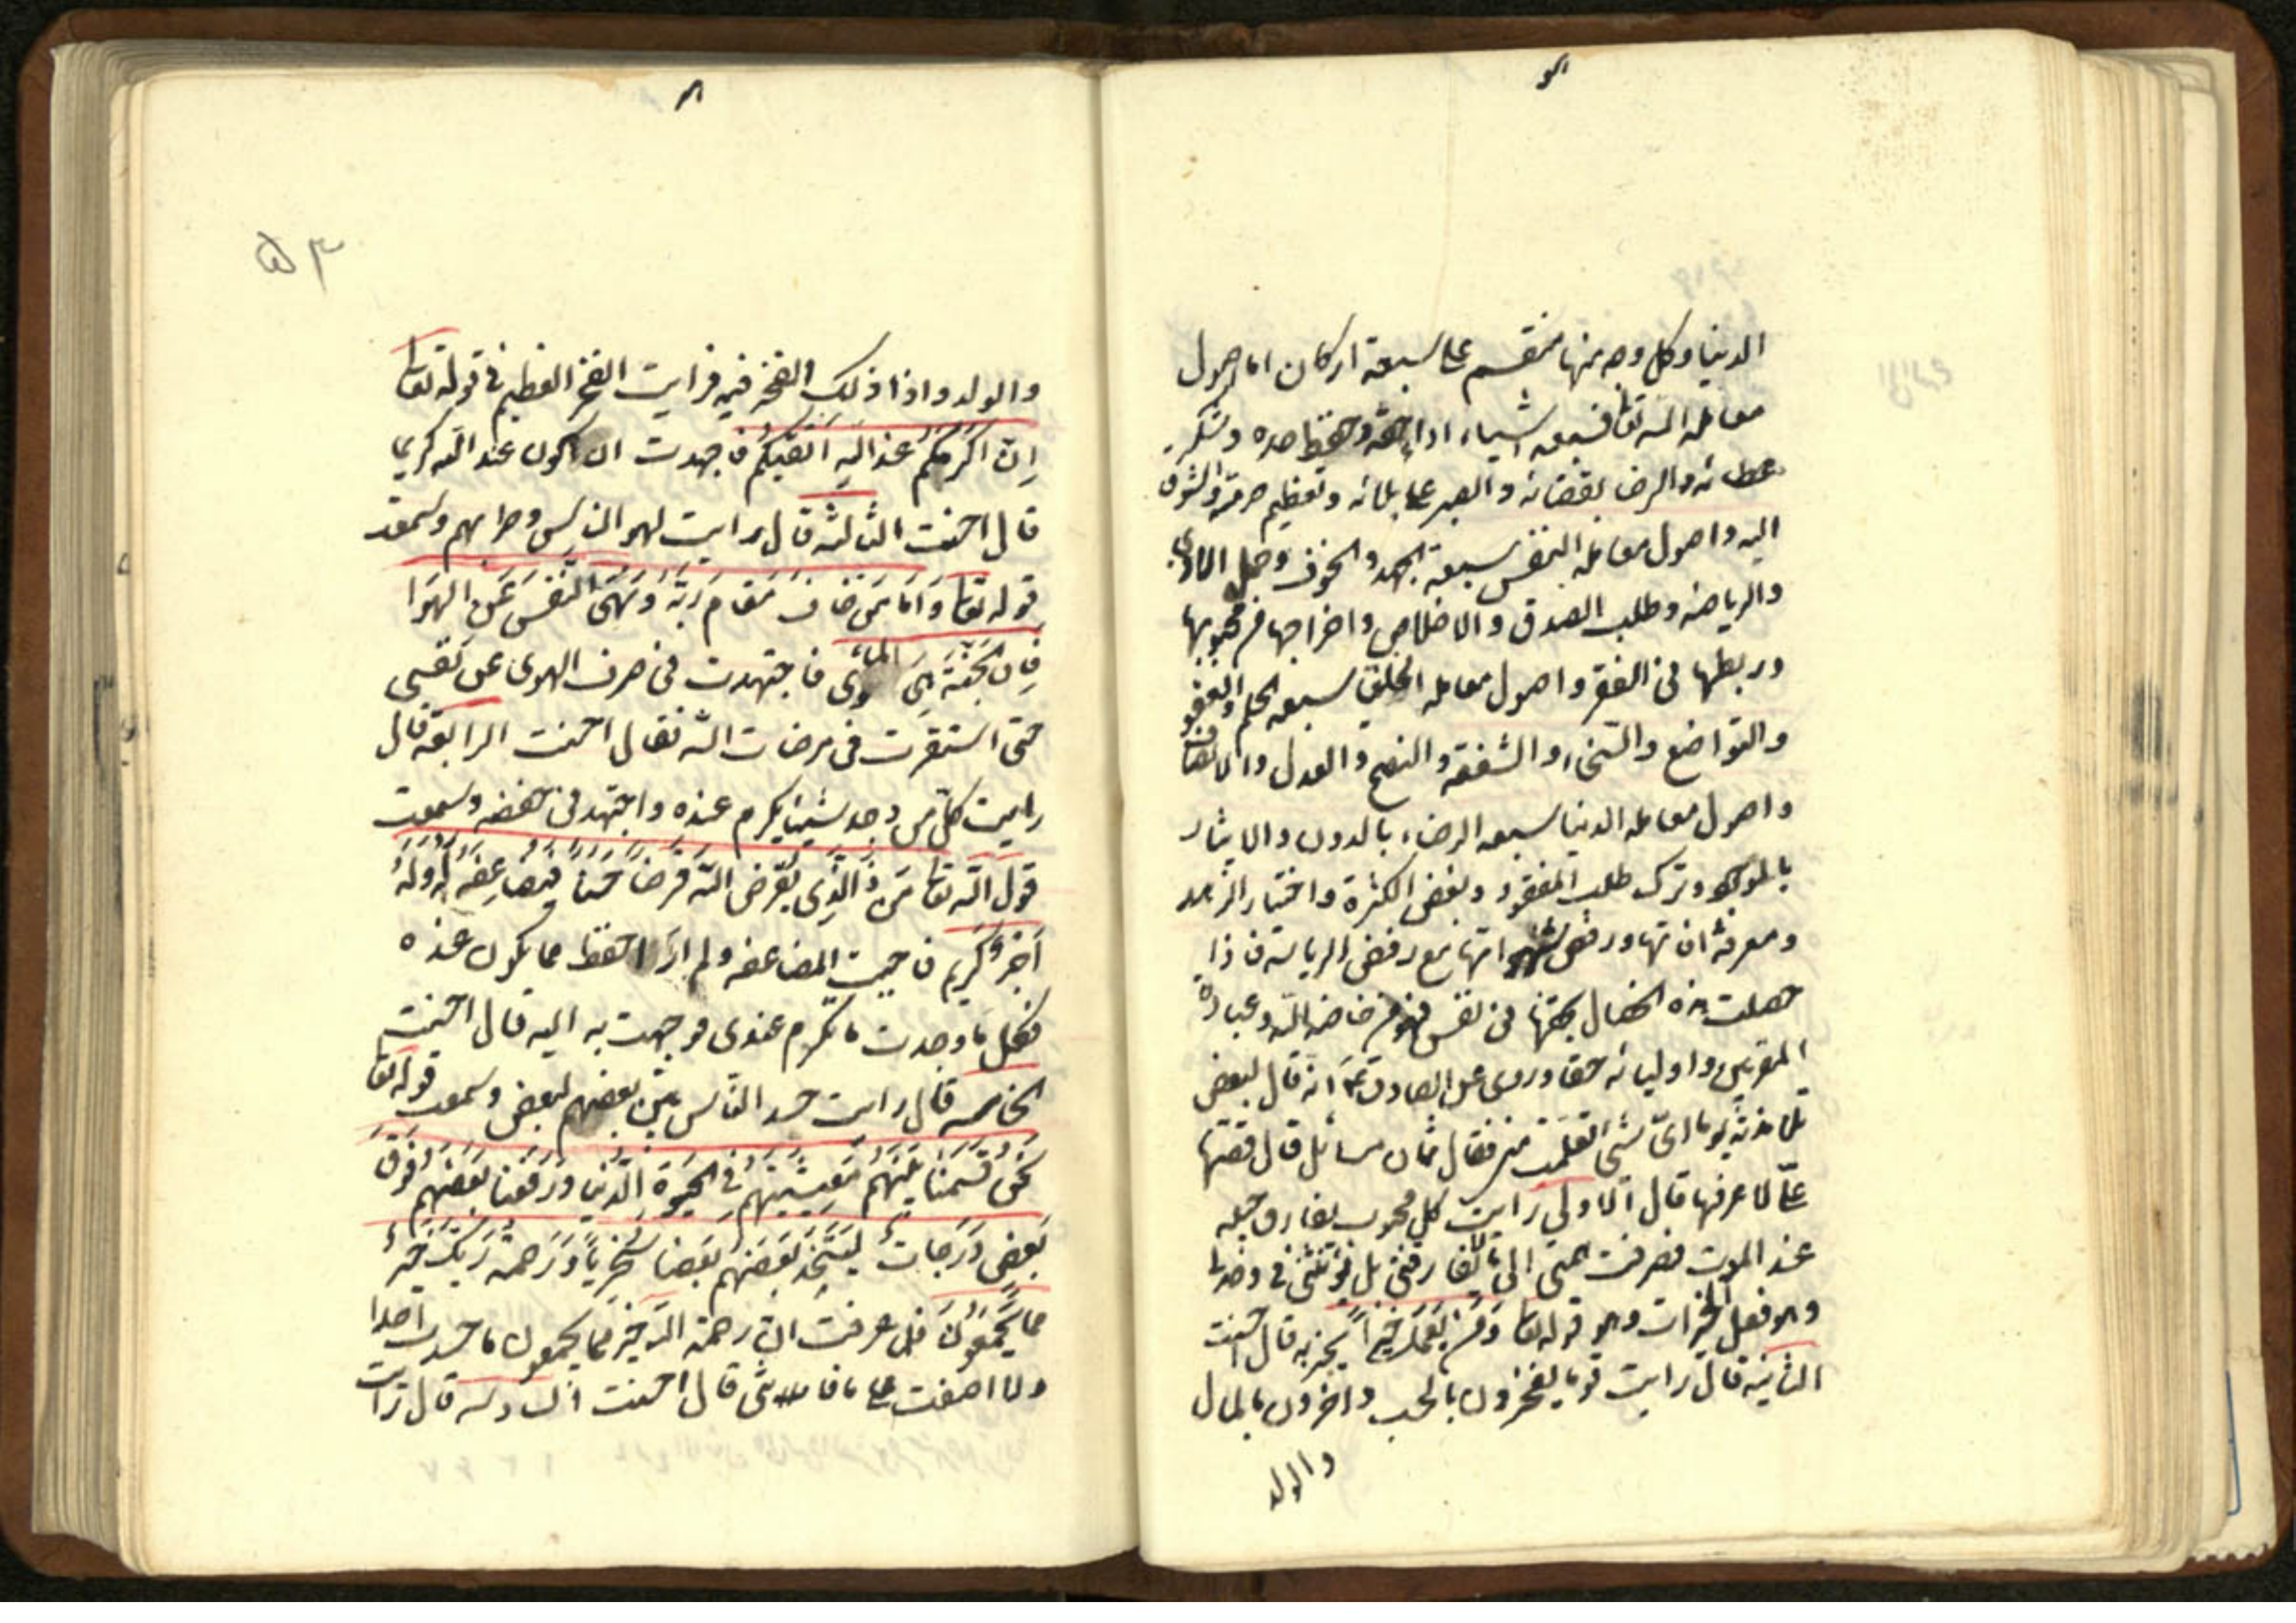 الدنيا وكل وجه منها منقسم على سبعة اركان اما اصول
معاملة الله تعا فسبعه اشياء اداء حقه وحفظ حده وشكر
عطائه والرضا بقضائه والصبر على بلائه وتعظيم حرمته والشوق
اليه واصول معاملة النفس سبعة الجهد والخوف وحمل الاذى
والرياضه وطلب الصدق والاخلاص واخراجها من محبوبها
وربطها فى الفقر واصول معامله الخلق سبعه الحلم والعفو
والتواضع والسخاء والشفقه والنصح والعدل والانصاف
واصول معامله الدنيا سبعه الرضاء بالدون والايثار
بالموجود وترك طلب المفقود وبغض الكثرة واختيار الزهد
ومعرفة افاتها ورفض شهواتها مع رفض الرياسه فاذا
حصلت هذه الخصال بحقها فى نفس فهو من خاصه الله وعباده
المقربين واوليائه حقا وروى عن الصادق ع انه قال لبعض
تلامذته يوما اىّ شئ تعلمت منى فقال ثمان مسائل قال قصّها
علىّ لاعرفها قال الاولى رايت كل محبوب يفارق حبيبه
عند الموت فصرفت همتى الى ما لا يفارقنى بل يؤنسنى فى وحدتى
وهو فعل الخيرات وهو قوله تعا وَمَنْ يَعْمَلْ خَيْراً يجز به قال احسنت
الثانيه قال رايت قوما يفخرون بالحسب واخرون بالمال
والولد
۵۳
والولد واذا ذلك الفخر فيه فرايت الفخر العظيم فى قوله تعا
اِنَّ اَكْرَمَكُمْ عِنْدَ اللهِ اَتْقَيكُمْ فاجهدت ان اكون عند الله كريما
قال احسنت الثالثه قال رايت لهو الناس وطرابهم وسمعت
قوله تعا وَاَمّا مَنْ خافَ مَقامَ رَبِّهِ وَنَهَى النَّفْسَ عَنِ الهَوَا
فَاِنَّ الجَنَّةَ هِىَ المَأوى فاجتهدت فى صرف الهوى عن نفسى
حتى استقرت فى مرضات الله تعال احسنت الرابعه قال
رايت كل من وجد شيئا يكرم عنده واجتهد فى حفضه وسمعت
قول الله تعا مَن ذَا الَّذِى يُقْرِضُ اللهَ قَرْضاً حَسَناً فَيُضاعِفَهُ لَهُ وَلَهُ
اَجْرٌ كَرِيم فاحببت المضاعفه ولم ار احفظ مما يكون عنده
فكل ما وجدت ما يكرم عندى وجهت به اليه قال احسنت
الخامسه قال رايت حسد الناس بين بعضهم لبعض وسمعت قوله تعا
نَحْنُ قَسَمْنا بَيْنَهُمْ مَعِيشَتَهُمْ فِى الحَيوةِ الدُّنيا وَرَفَعْنا بَعْضَهُمْ فَوْقَ
بَعْضٍ دَرَجاتٍ لِيَتَّخِذَ بَعْضُهُمْ بَعْضاً سُخْرِيّاً وَرَحْمَةُ رَبِّكَ خَيْرٌ
مِمّا يَجْمَعُونَ فلما عرفت ان رحمة الله خير مما يجمعون ما حسدت احدا
ولا اسفت على ما فاتنى قال احسنت السادسه قال رايت